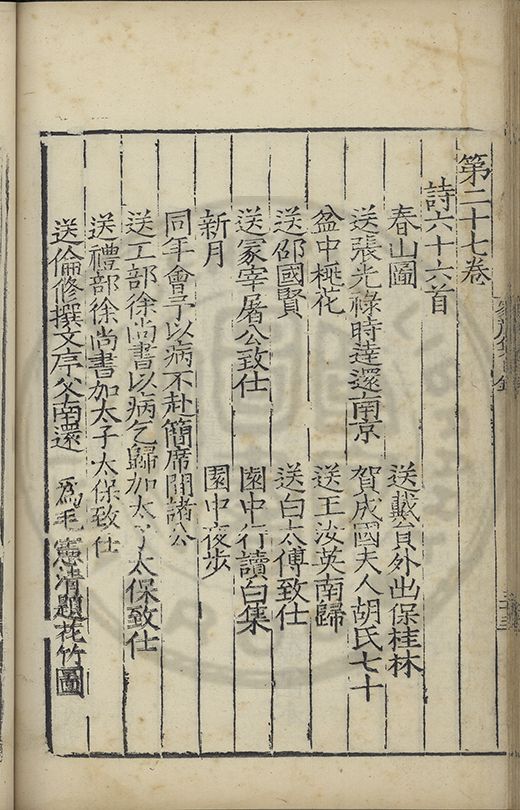 第二十七卷
詩六十六首
春山圖 送戴員外出保桂林
送張光祿時達還南京 賀成國夫人胡氏七十
盆中桃花 送王濬英南歸
送邵國賢 送白太傅致仕
送冢宰屠公致仕 園中行讀白集
新月 園中夜步
同年會予以病不赴簡席間諸公
送工部徐尚書以病乞歸加太子太保致仕
送禮部徐尚書加太子太保致仕
送倫修撰文序父南還 為毛憲清題花竹圖